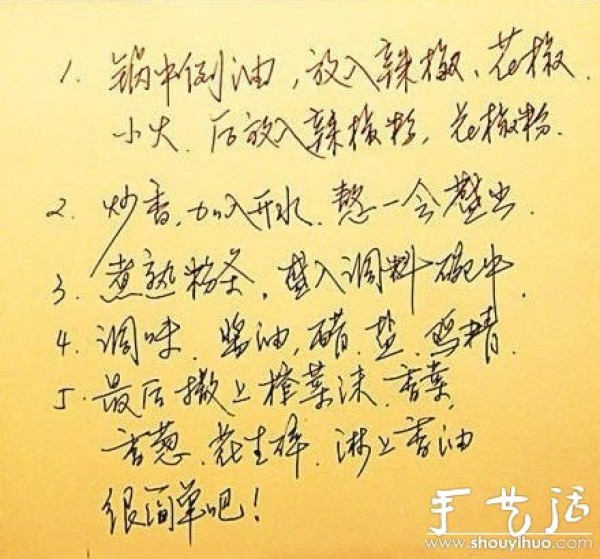 1. 锅中倒油，放入辣椒、花椒.
小火.后放入辣椒粉，花椒粉.
2. 炒香，加入开水.整一会盛出.
3. 煮熟粉条，盛入调料碗中.
4. 调味.酱油，醋.盐.鸡精.
5. 最后撒上榨菜沫.香菜.
香葱.花生碎.淋上香油
很简单吧！
手艺活
www.shouyihuo.com